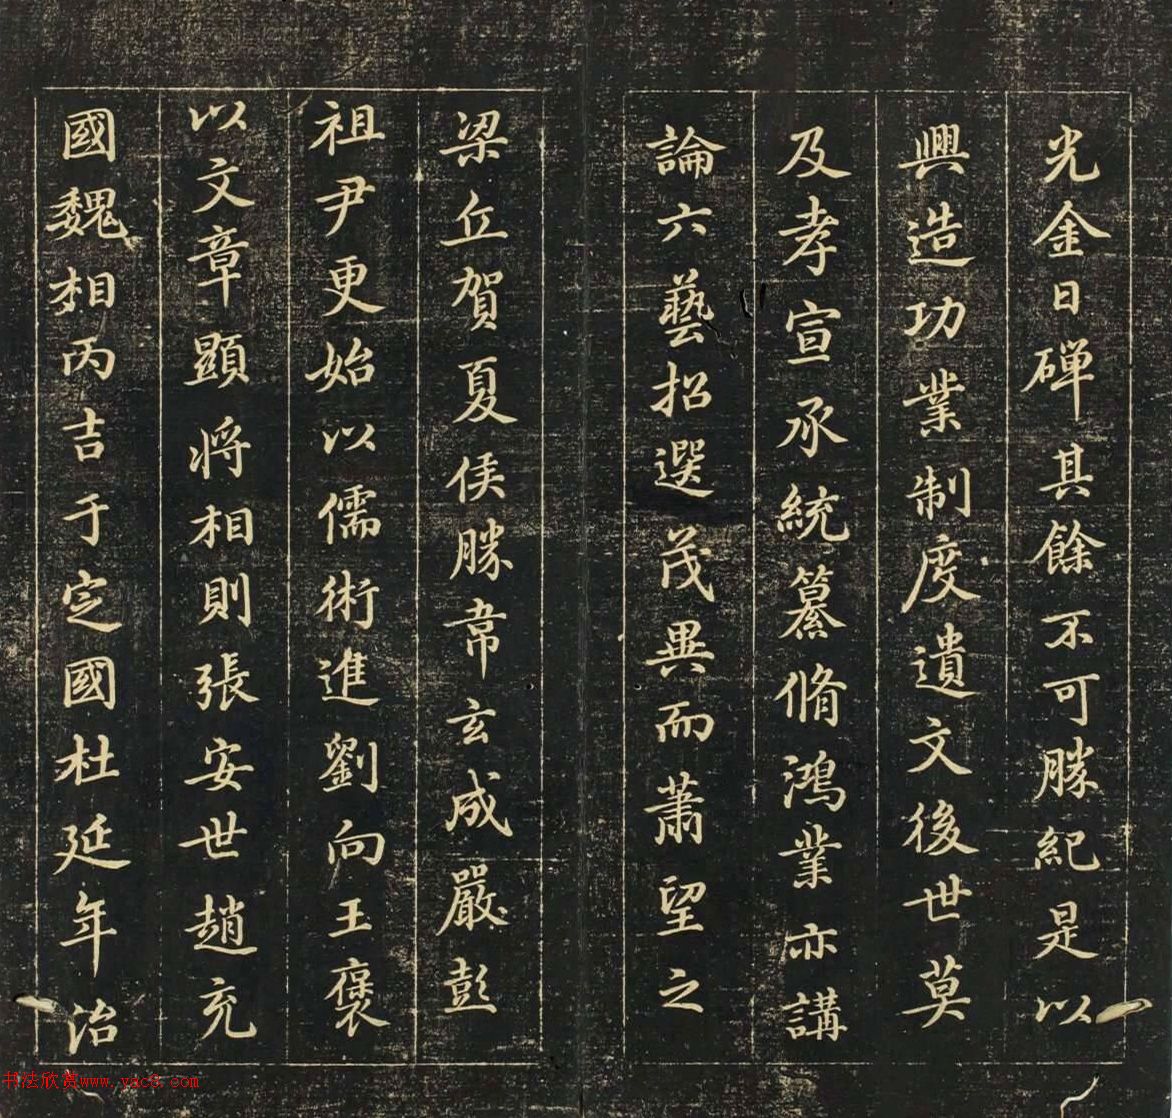 光金日磾其餘不可勝紀是以
興造功業制度遺文後世莫
及孝宣承統纂脩鴻業亦講
論六藝招選茂異而蕭望之
梁丘賀夏侯勝韋玄成嚴彭
祖尹更始以儒術進劉向王褒
以文章顯將相則張安世趙充
國魏相丙吉于定國杜延年治
书法欣赏www.yac8.com